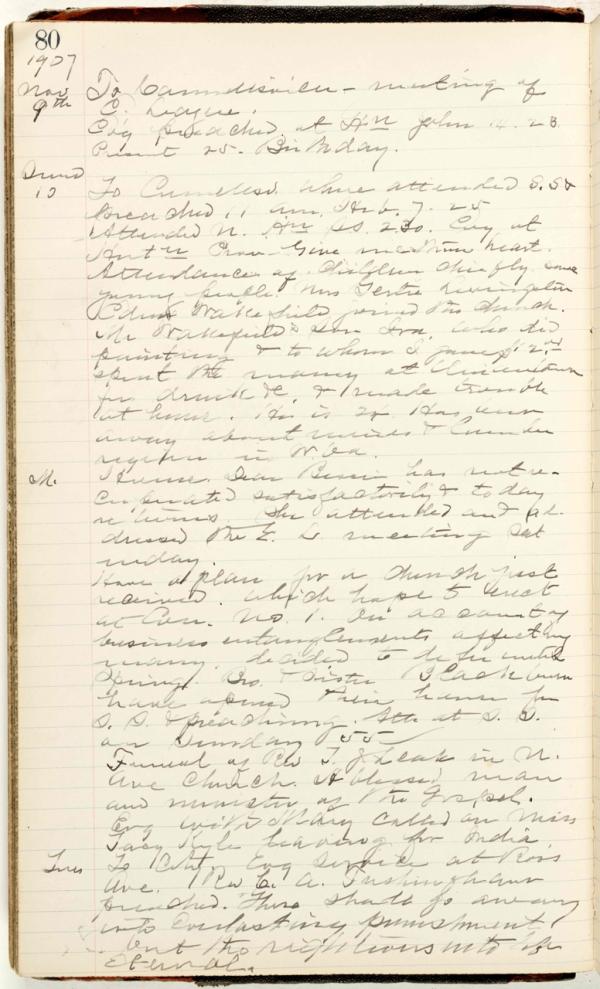 80
1907
Nov 9th To - meeting of
E. League.
Evg preached at Hn John 14. 23
Present 25. Birthday.
10 To where attended S.S &
preached 11 am. Heb. 7. 25
Attended N. Hn S.S. 2.30. Evg at
Prov Give me thine heart.
Attendance of children chiefly some
young people. Mrs
Wakefield joined the church.
Mr Wakefield's son Ira who did
painting & to whom I gave
spent the money at
for drink &c. & made trouble
at home. He is Has been
away about mines & lumber
region in W.Va.
M. Home. Dear Bessie has not re-
cuperated satisfactorily & today
returns. She attended and ad-
dressed the E. L. meeting Sat
urday.
Have a plan for a church just
received which hope to erect
at No. 1. On account of
business entanglements affecting
many decided to defer until
Spring. Bro. & Sister Blackburn
have opened their house for
S. S. & preaching. at S. S.
on Sunday 55
Funeral of Rev T. in N.
Ave Church. A blessed man
and minister of the Gospel.
Evg with Mary called on Miss
Kyle leaving for India.
Tues To City Evg service at Ross
Ave. Rev C. A.
preached. These shall go away
into everlasting punishment
but the righteous into life
eternal.